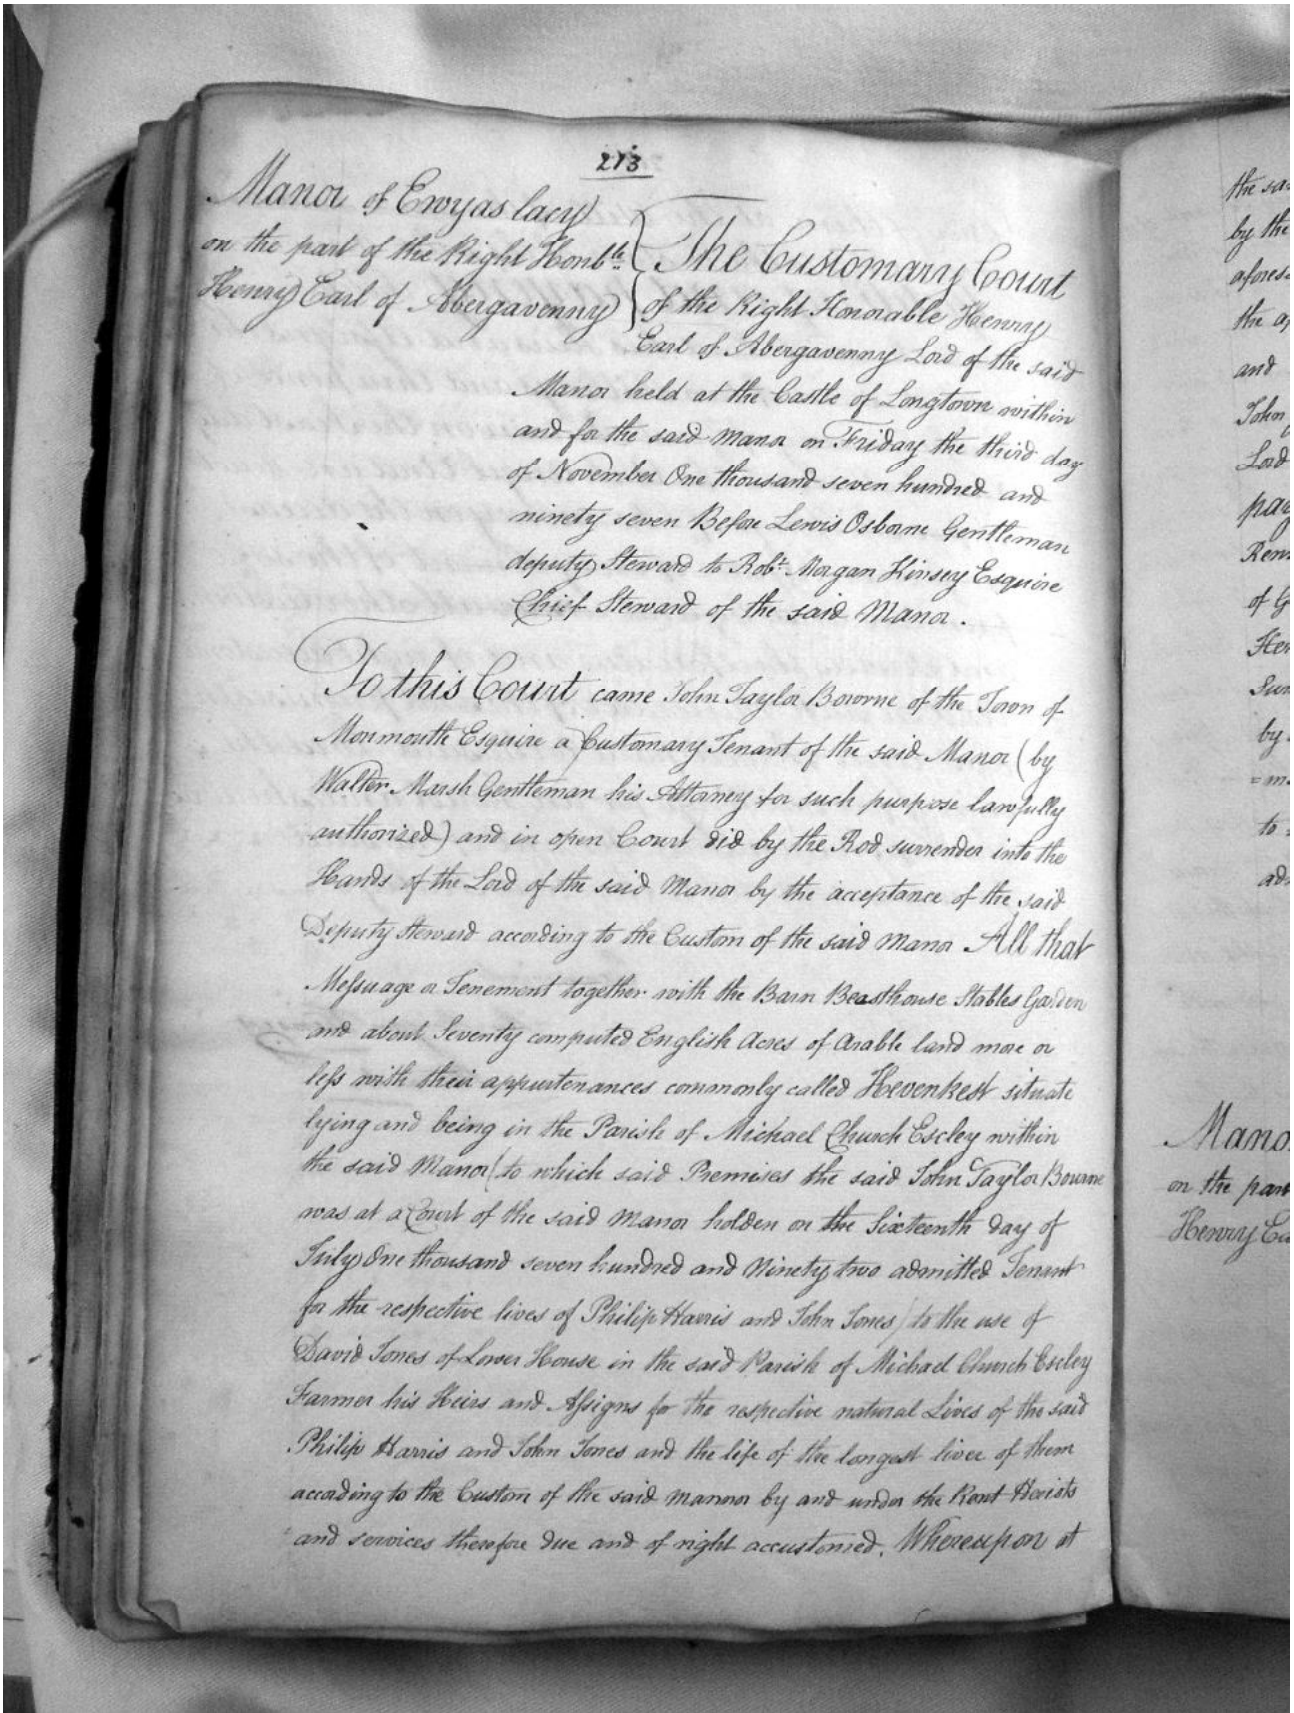 213
Manor of Ewyas lacy
on the part of the Right Honble
Henry Earl of Abergavenny
The Customary Court
of the Right Honorable Henry
Earl of Abergavenny Lord of the said
Manor held at the Castle of Longtown within
and for the said Manor on Friday the third day
of November One thousand seven hundred and
ninety seven Before Lewis Osborne Gentleman
deputy Steward to Robt. Morgan Kinsey Esquire
Chief Steward of the said Manor.
To this Court came John Taylor Bowrne of the Town of
Monmouth Esquire a Customary Tenant of the said Manor (by
Walter Marsh Gentleman his Attorney for such purpose lawfully
authorized) and in open Court did by the Rod surrender into the
Hands of the Lord of the said Manor by the acceptance of the said
Deputy Steward according to the Custom of the said Manor All that
Messuage or Tenement together with the Barn Beasthouse Stables Garden
and about Seventy computed English Acres of Arable land more or
less with their appurtenances commonly called Hevenkest situate
lying and being in the Parish of Michael Church Escley within
the said Manor (to which said Premises the said John Taylor Bourne
was at a Court of the said Manor holden on the Sixteenth day of
July One thousand seven hundred and Ninety two admitted Tenant
for the respective lives of Philip Harris and John Jones) to the use of
David Jones of Lower House in the said Parish of Michael Church Escley
Farmer his Heirs and Assigns for the respective natural Lives of the said
Philip Harris and John Jones and the life of the longest liver of them
according to the Custom of the said mannor by and under the Rent Heriots
and services therefore due and of right accustomed. Whereupon at
the
by the
the
and
John
Lord
of
by
to
Mano
on the par
Henry Ea